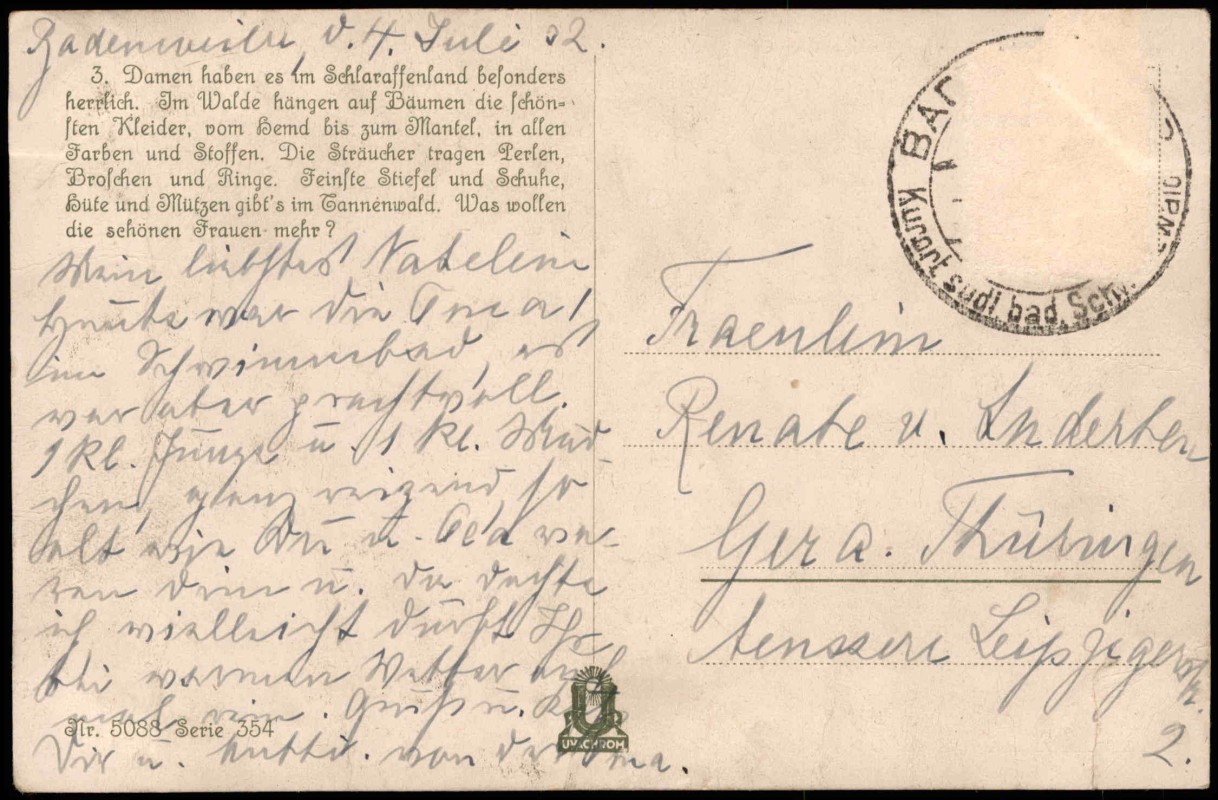 Badenweiler, d. 4. Juli 32.
3. Damen haben es im Schlaraffenland besonders
herrlich. Im Walde hängen auf Bäumen die schön=
sten Kleider, vom Hemd bis zum Mantel, in allen
Farben und Stoffen. Die Sträucher tragen Perlen,
Broschen und Ringe. Feinste Stiefel und Schuhe,
Hüte und Mützen gibt's im Tannenwald. Was wollen
die schönen Frauen mehr?
Mein liebstes Natelein
Heute war die Oma
im Schwimmbad, es
war aber prachtvoll.
1 kl. Junge u. 1 kl. Mäd-
chen, ganz reizend, so
alt wie Du u. wa-
ren drin u. da dachte
ich vielleicht dürft Ihr
bei warmen Wetter auch
mal rein. Gruß u. Kuß
Dir u. Mutti. von der Oma.
Nr. 5088 Serie 354
UVACHROM
BAD
Kurort südl bad. Schw
Fraenlein
Renate v. Inderten
Gera. Thüringen
aeussere Leipziger
2.